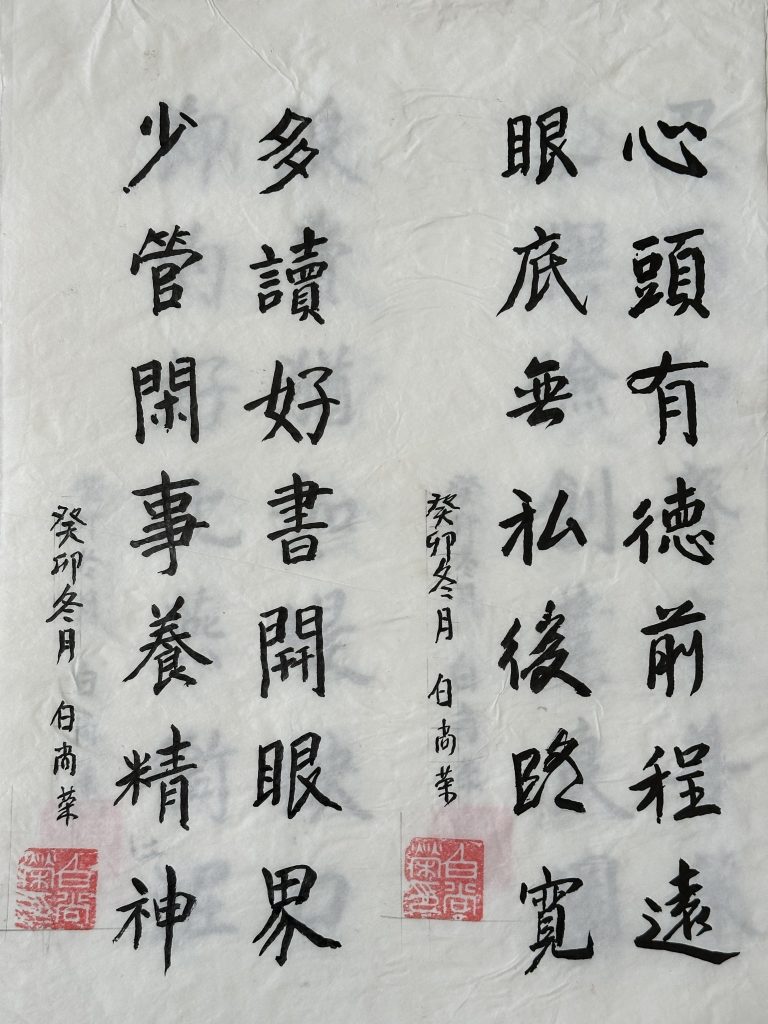 心頭有德前程遠
眼底無私後路寬
癸卯冬月 白尚荣
白尚荣印
多讀好書開眼界
少管閑事養精神
癸卯冬月 白尚荣
白尚荣印